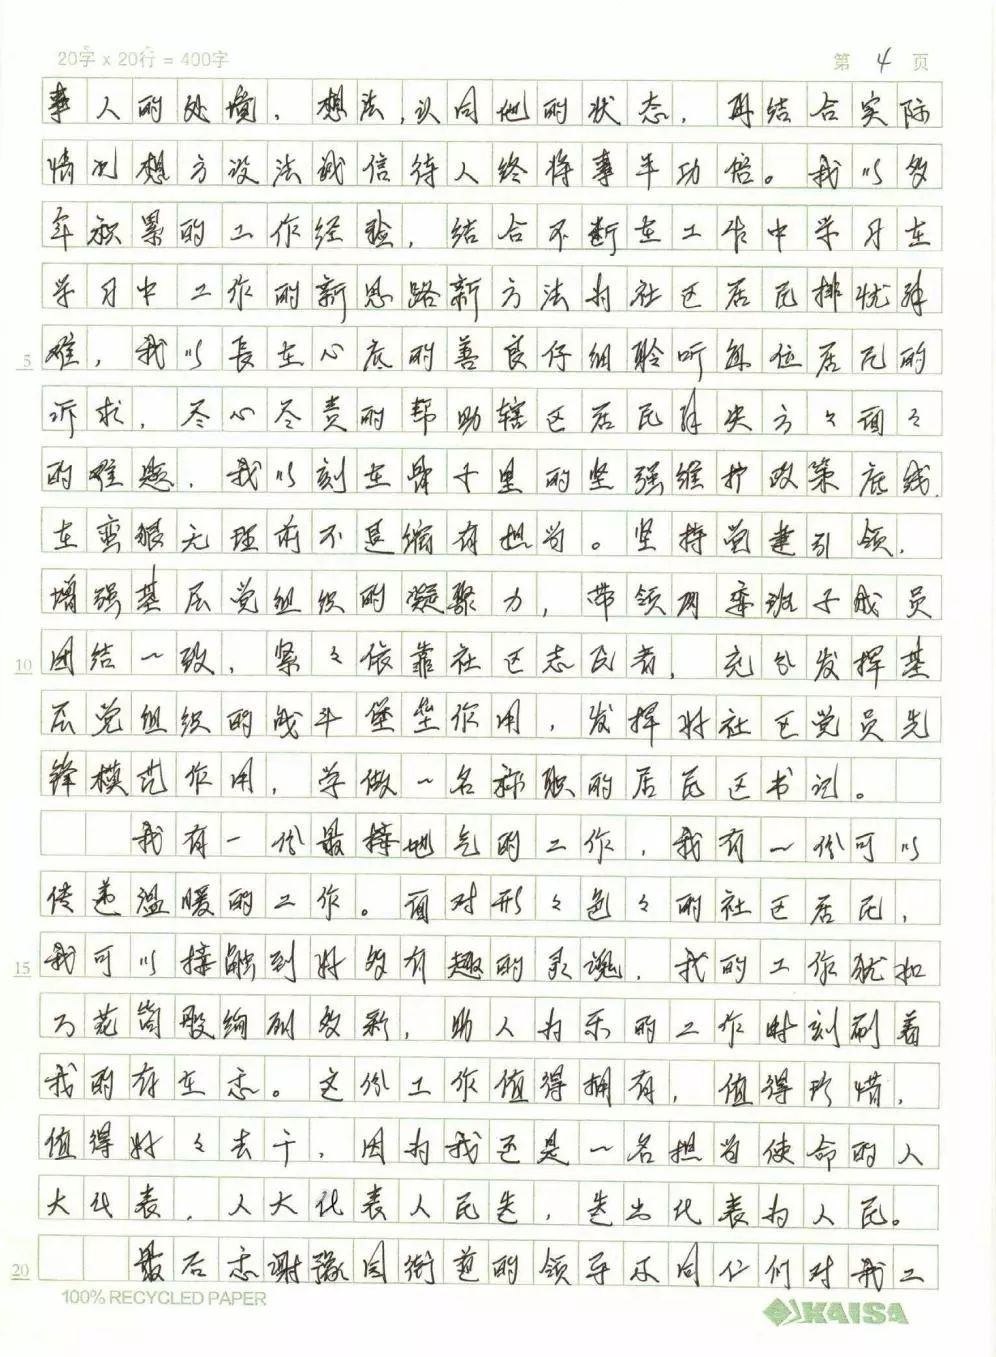 20字 x 20行 = 400字
第 4 页
事人的处境，想法，认同他的状态，再结合实际
情况想方设法诚信待人终将事半功倍。我以多
年积累的工作经验，结合不断在工作中学习在
学习中工作的新思路新方法为社区居民排忧解
5 难，我以长在心底的善良仔细聆听每位居民的
诉求，尽心尽责的帮助辖区居民解决方々面々
的难题，我以刻在骨子里的坚强维护政策底线，
在蛮狠无理前不退缩有担当。坚持党建引领，
增强基层党组织的凝聚力，带领两委班子成员
10 团结一致，紧々依靠社区志愿者，充分发挥基
层党组织的战斗堡垒作用，发挥好社区党员先
锋模范作用，学做一名称职的居民区书记。
我有一份最接地气的工作，我有一份可以
传递温暖的工作。面对形々色々的社区居民，
15 我可以接触到好多有趣的灵魂，我的工作犹如
万花筒般绚丽多彩，助人为乐的工作时刻刷着
我的存在感。这份工作值得拥有，值得珍惜，
值得好々去干，因为我还是一名担当使命的人
大代表，人大代表人民选，选出代表为人民。
20 最后感谢豫园街道的领导及同仁们对我工
100% RECYCLED PAPER
KAISA